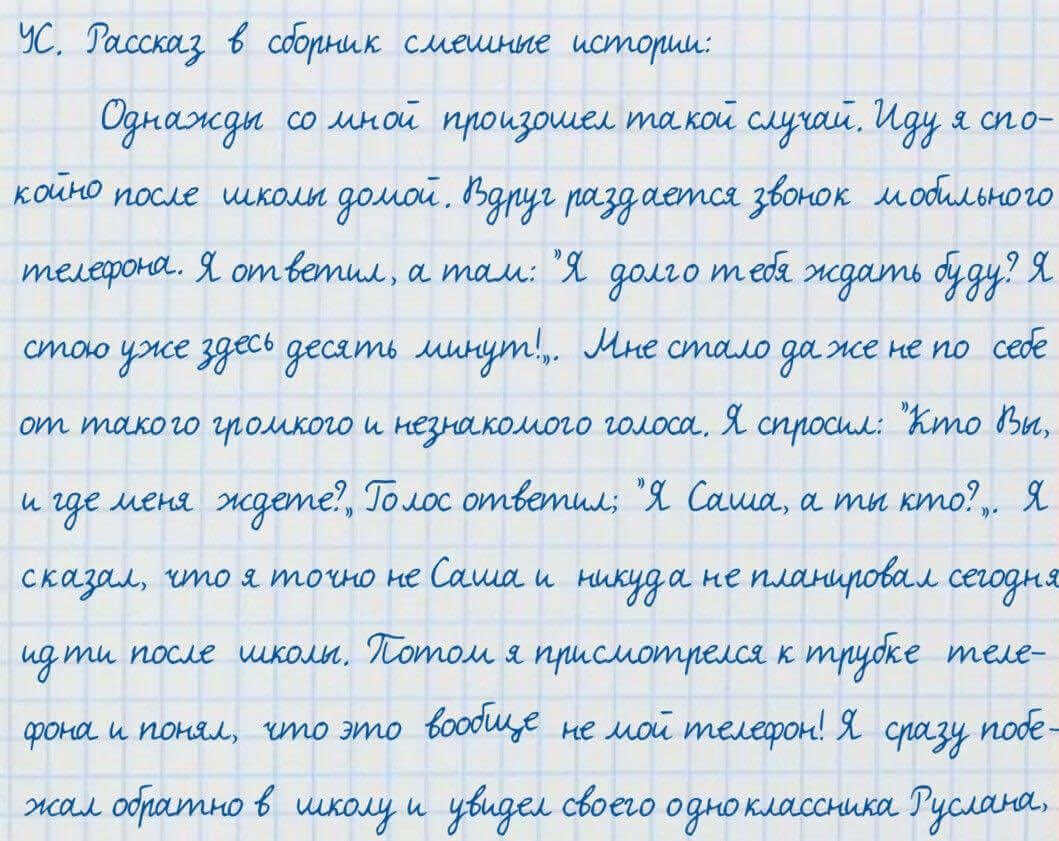 УС. Рассказ в сборник смешные истории:
Однажды со мной произошел такой случай. Иду я спо-
койно после школы домой. Вдруг раздается звонок мобильного
телефона. Я ответил, а там: "Я долго тебя ждать буду? Я
стою уже здесь десять минут!„. Мне стало даже не по себе
от такого громкого и незнакомого голоса. Я спросил: "Кто Вы,
и где меня ждете?„ Голос ответил; "Я Саша, а ты кто?„. Я
сказал, что я точно не Саша и никуда не планировал сегодня
идти после школы. Потом я присмотрелся к трубке теле-
фона и понял, что это вообще не мой телефон! Я сразу побе-
жал обратно в школу и увидел своего одноклассника Руслана,